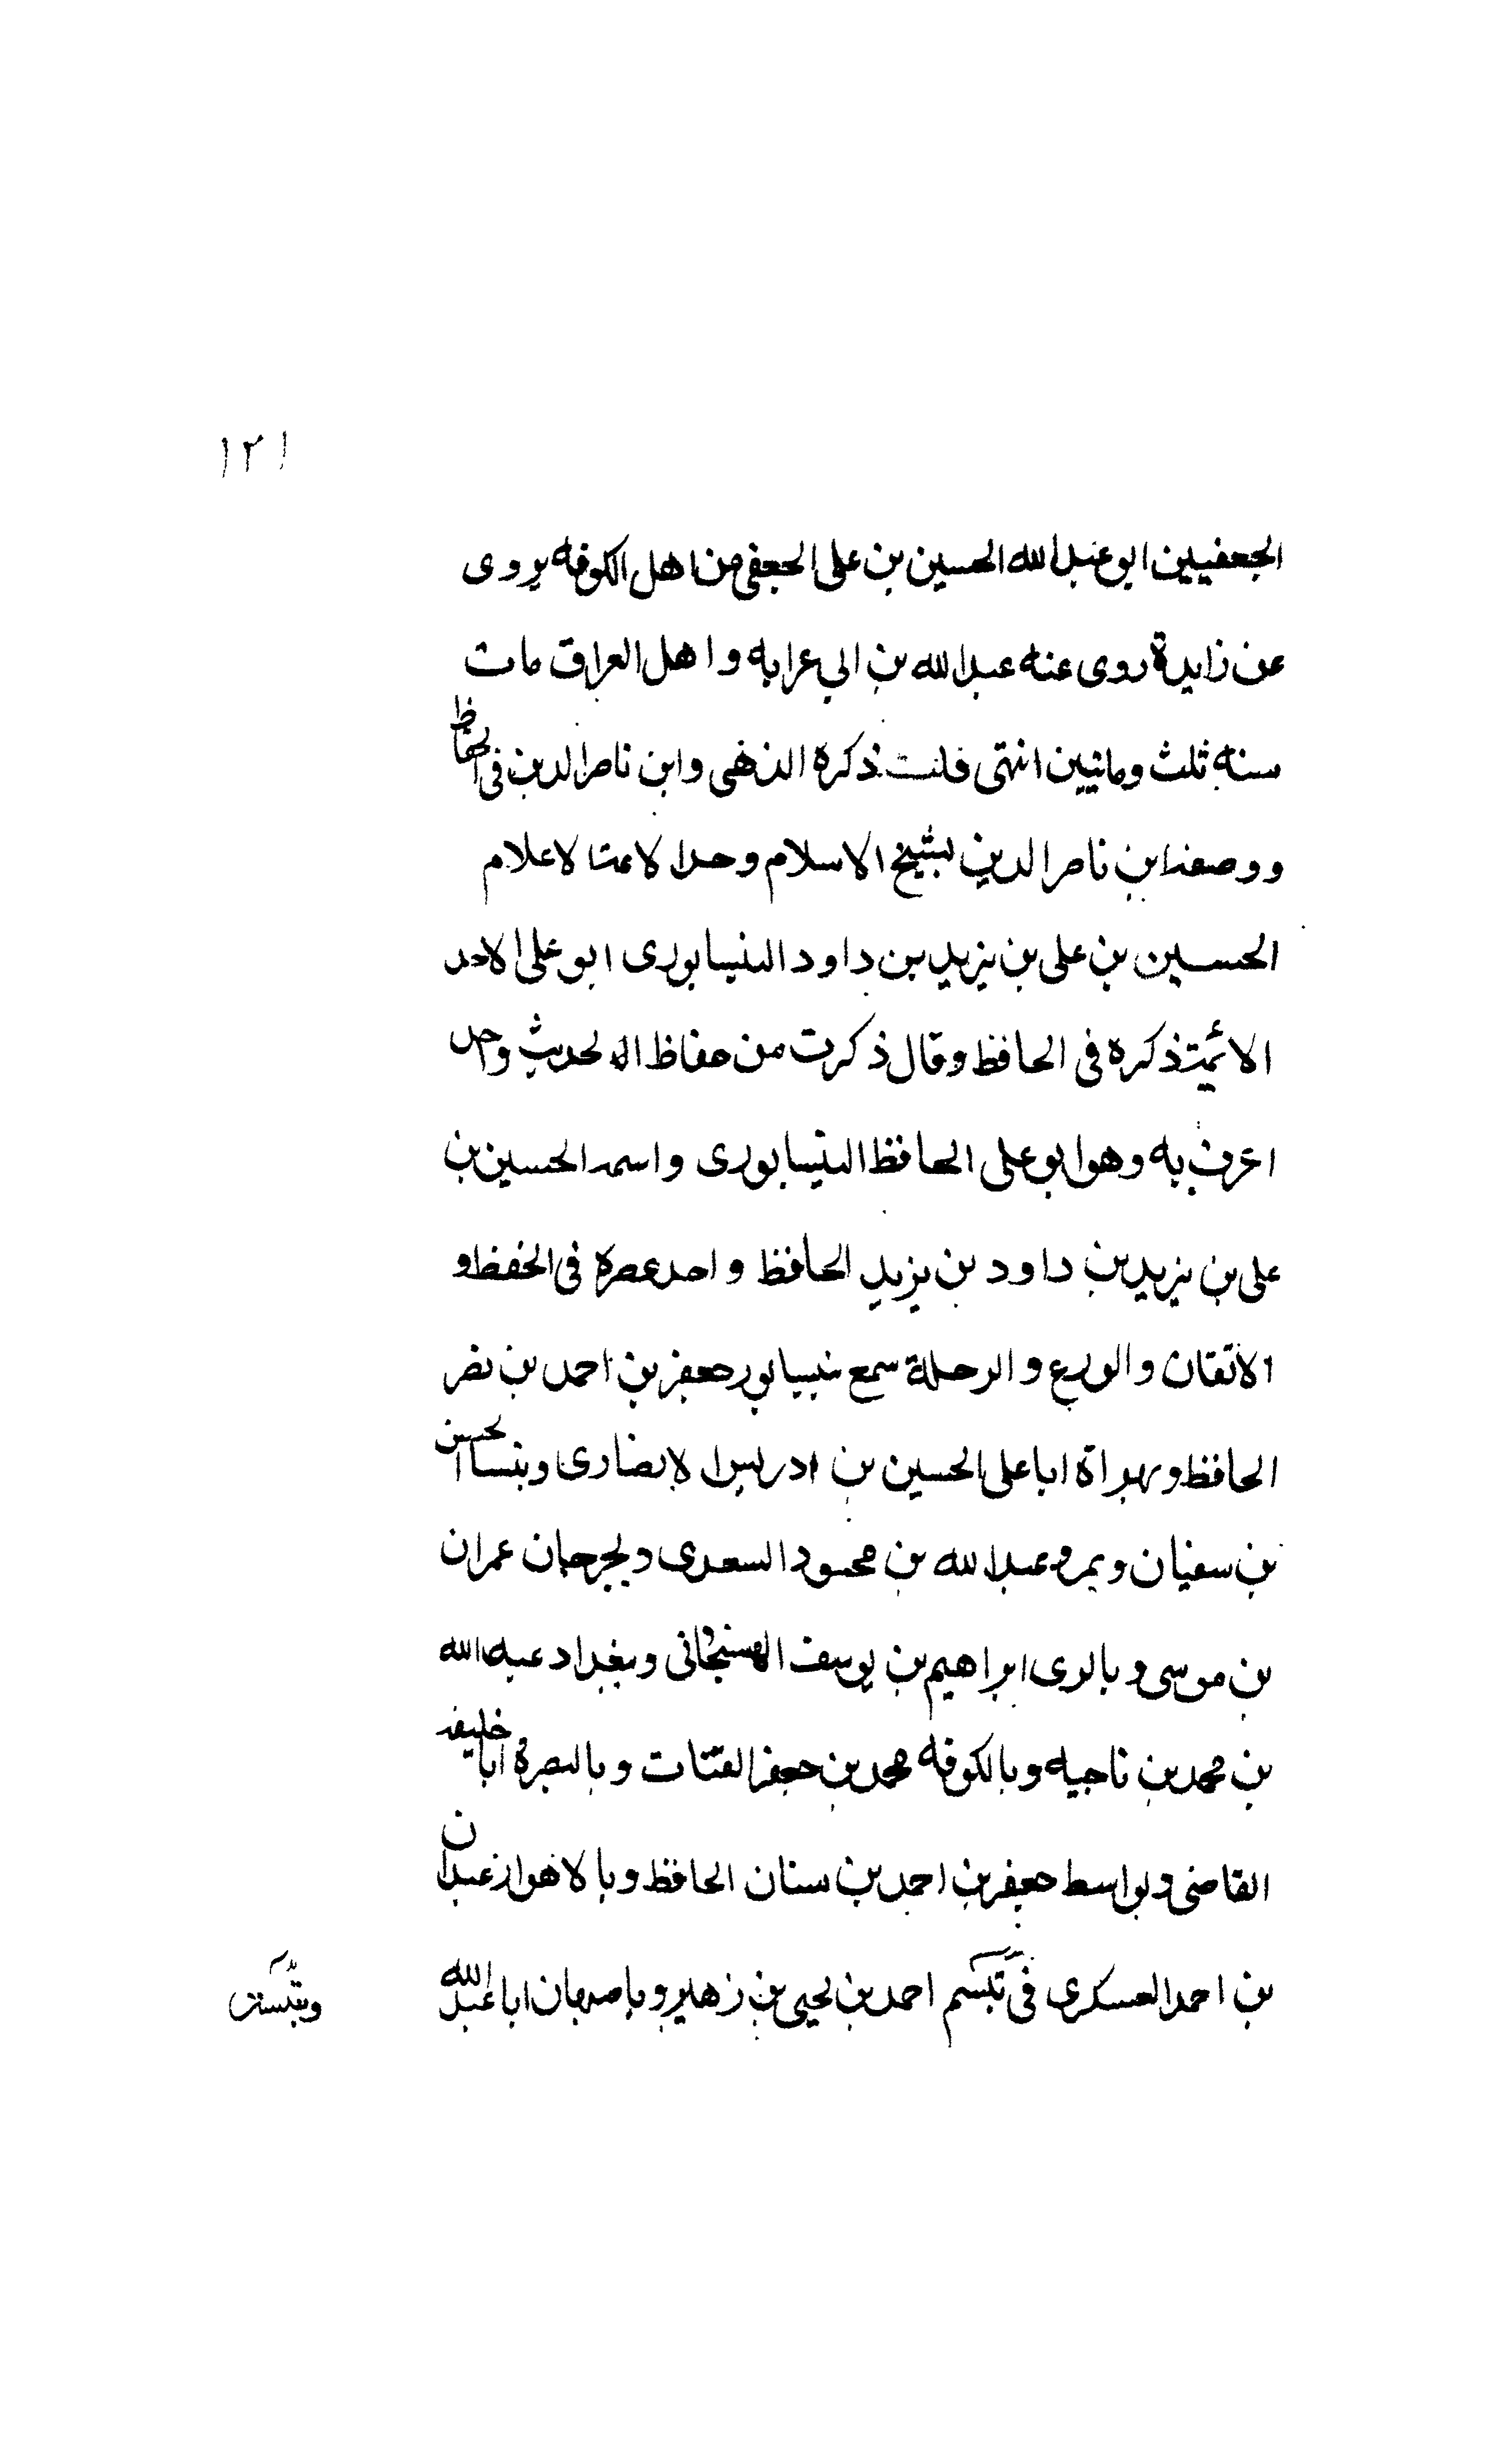 ١٢١
الجعفيين ابو عبد الله الحسين بن على الجعفى من اهل الكوفه يروى
عن زايدة روى عنه عبد الله بن ابى عرابه واهل العراق مات
سنه ثلث ومايتين انتهى قلت ذكره الذهبى وابن ناصر الدين فى الحفاظ
ووصفه ابن ناصر الدين بشيخ الاسلام وحد الامه الاعلام
الحسين بن على بن يزيد بن داود النيسابورى ابو على الاحد
الائمة ذكره فى الحافظ وقال ذكرت من حفاظ الحديث واحد
اعرف به وهو ابو على الحافظ النيسابورى واسمه الحسين بن
على بن يزيد بن داود بن يزيد الحافظ واحد عصره فى الحفظ و
الاتقان والورع والرحلة سمع بنيسابور جعفر بن احمد بن نصر
الحافظ وبهراة ابا على الحسين بن ادريس الانصارى وبنسا الحسن
بن سفيان وبمرو عبد الله بن محمود السعدى وبجرجان عمران
بن موسى وبالرى ابراهيم بن يوسف الهسنجانى وببغداد عبد الله
بن محمد بن ناجيه وبالكوفه محمد بن جعفر القتات وبالبصره ابا خليفه
القاضى وبواسط جعفر بن احمد بن سنان الحافظ وبالاهواز عبدان
بن احمد العسكرى فى احمد بن يحيى بن زهير وباصبهان ابا عبد الله